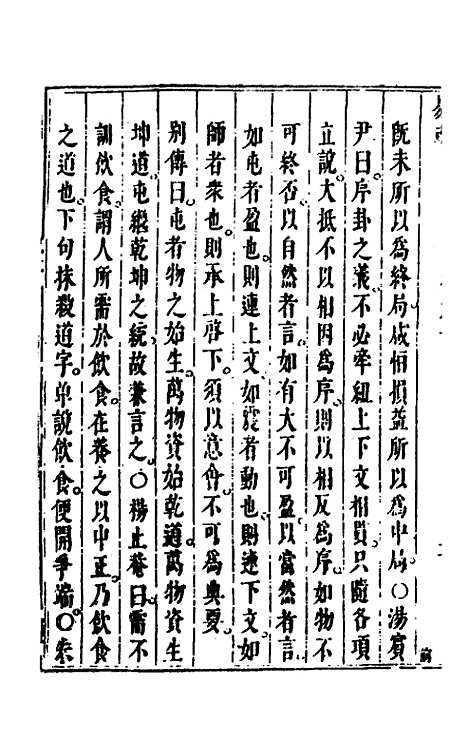 既未所以爲終局咸恒損益所以爲中局○湯賓
尹曰序卦之義不必牽紐上下文相貫只隨各項
立說大抵不以相因爲序則以相反爲序如物不
可終否以自然者言如有大不可盈以當然者言
如屯者盈也則連上文如震者動也則連下文如
師者衆也則承上啓下須以意會不可爲典要
别傳曰屯者物之始生萬物資始乾道萬物資生
坤道屯繼乾坤之統故兼言之○楊止菴曰需不
訓飲食謂人所需於飲食在養之以中正乃飲食
之道也下句抹殺道字单說飲食便開爭端○